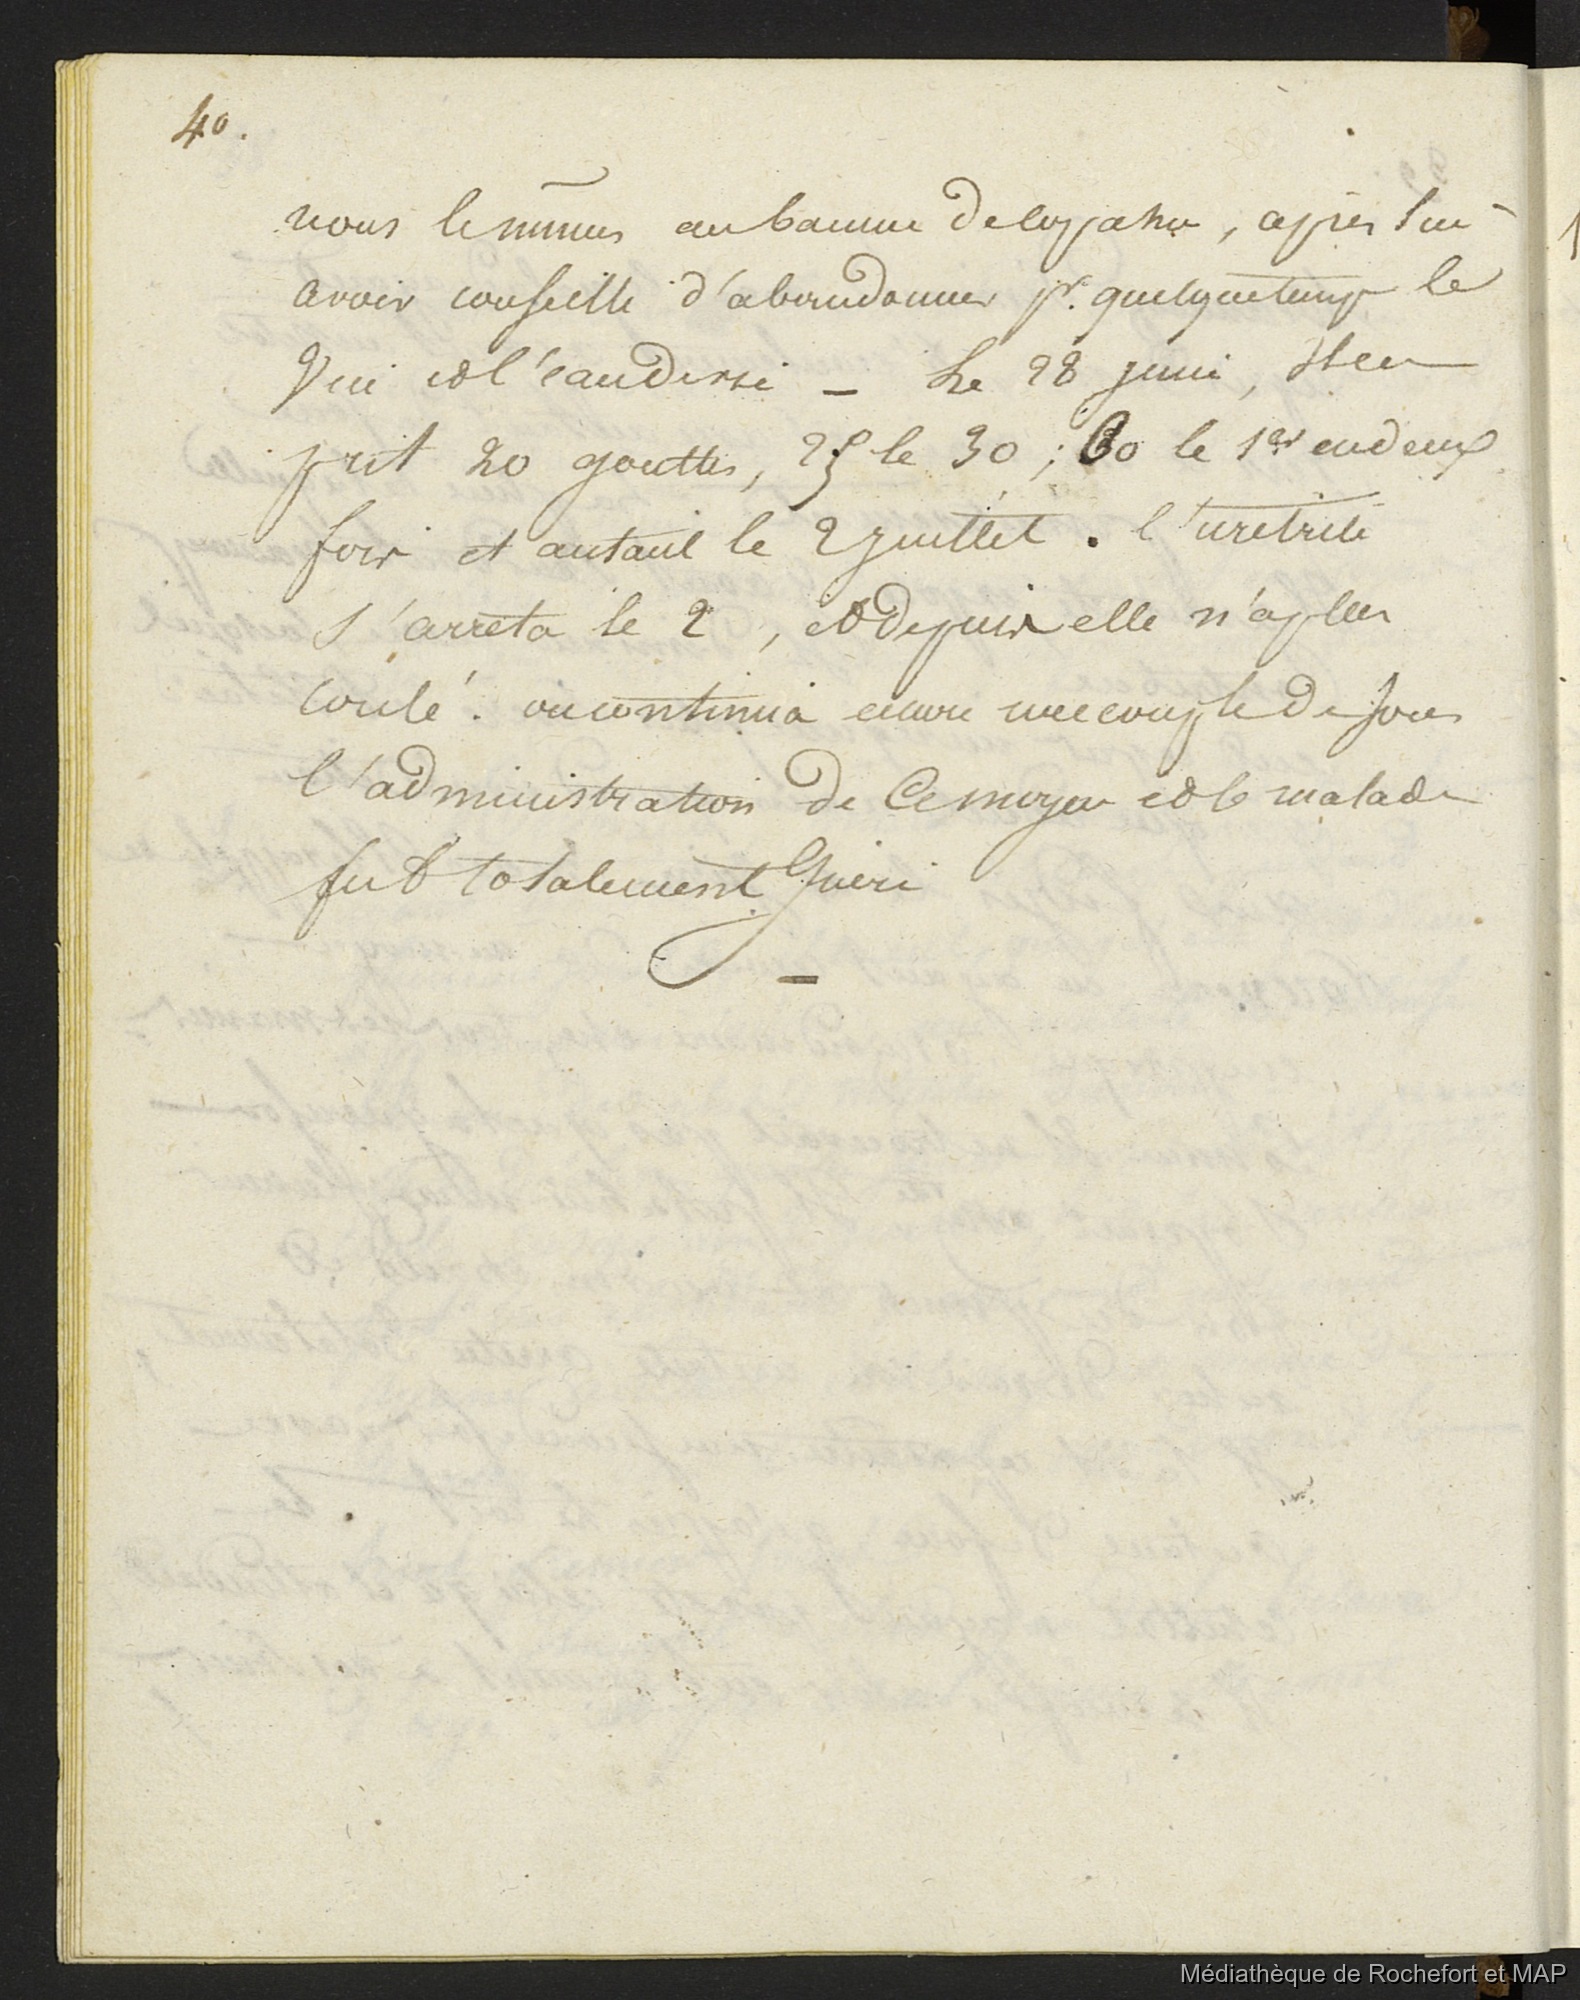 40.
nous le mîmes au baume de copahu, après lui
avoir conseillé d'abandonner pr. quelque temps le
Vin et l'eau de vie _ Le 28 juin, il en
prit 20 gouttes, 25 le 30 ; 60 le 1er en deux
fois et autant le 2 juillet. l'uretrite
s'arreta le 2, et depuis elle n'a plus
coulé. on continua encore une couple de jours
l'administration de ce moyen et le malade
fut totalement Guéri
_
Médiathèque de Rochefort et MAP